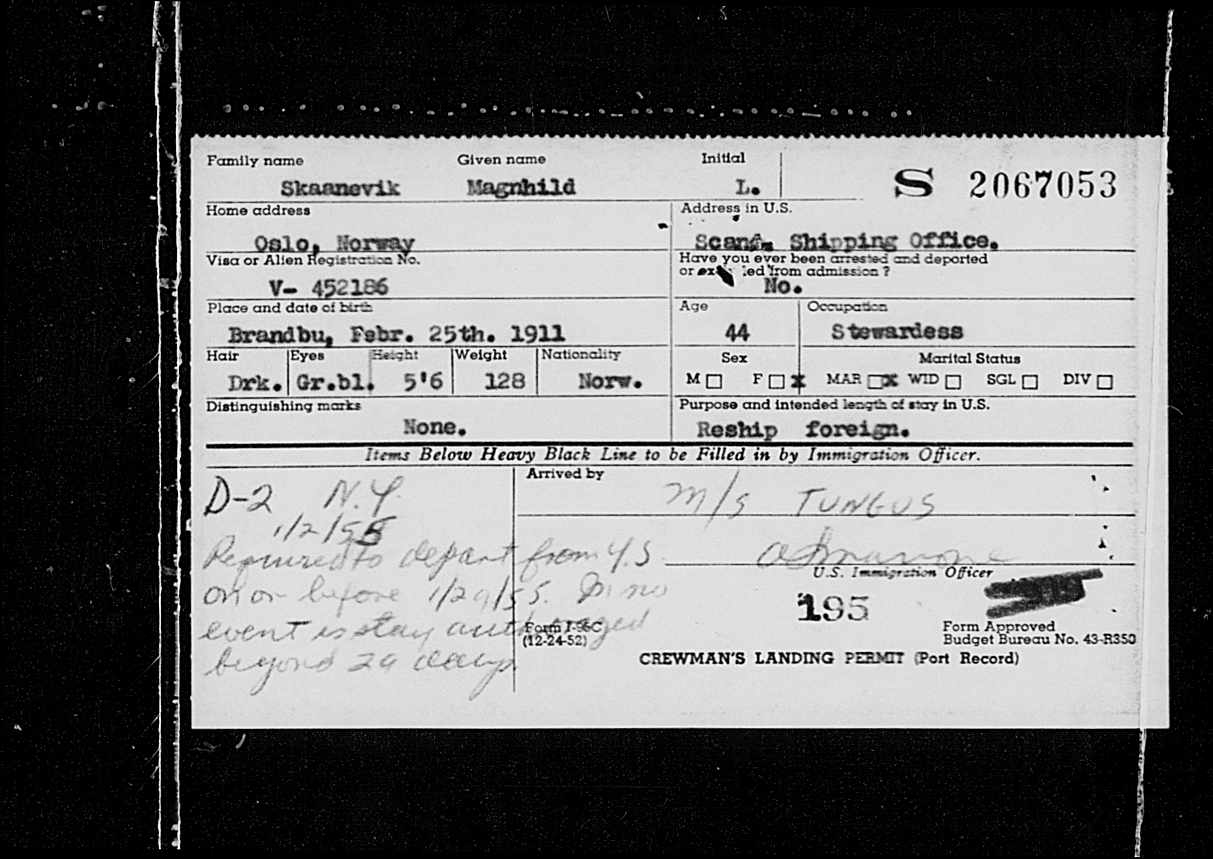 Family name Given name Initial
Skaanevik Magnhild L. S 2067053
Home address Address in U.S.
Oslo, Norway Scand. Shipping Office.
Visa or Alien Registration No. Have you ever been arrested and deported
or ex led from admission?
V- 452186 No.
Place and date of birth Age Occupation
Brandbu, Febr. 25th. 1911 44 Stewardess
Hair Eyes Height Weight Nationality Sex Marital Status
Drk. Gr.bl. 5'6 128 Norw. M F x MAR x WID SGL DIV
Distinguishing marks Purpose and intended length of stay in U.S.
None. Reship foreign.
Items Below Heavy Black Line to be Filled in by Immigration Officer.
Arrived by
D-2 N.Y. M/S TUNGUS
1/2/55
Required to depart from U.S.
U.S. Immigration Officer
on or before 1/29/55. In no
195
event is stay authorized
Form I-95C Form Approved
(12-24-52) Budget Bureau No. 43-R350
beyond 29 days.
CREWMAN'S LANDING PERMIT (Port Record)